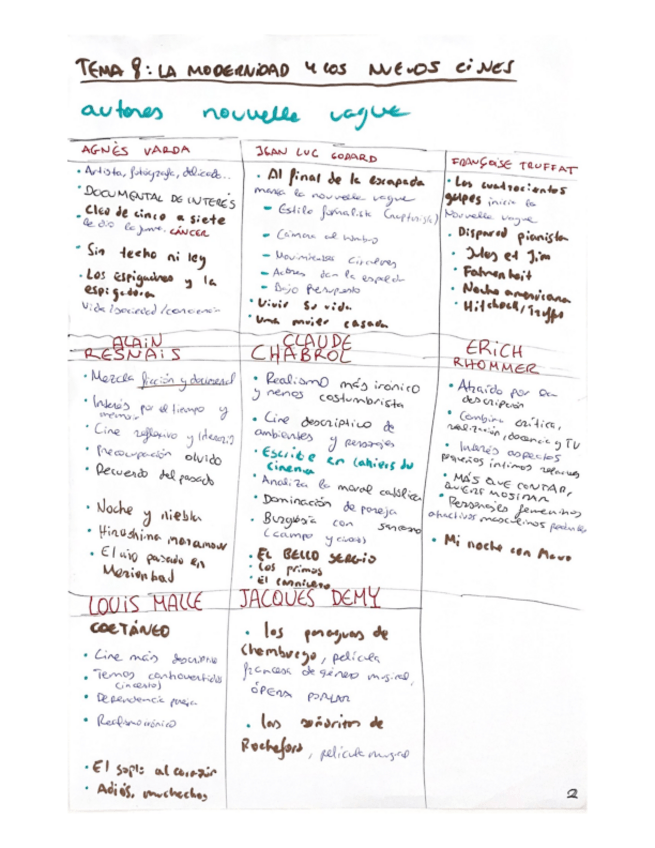 TEMA 8: LA MODERNIDAD Y LOS NUEVOS CINES
autores nouvelle vague
AGNÈS VARDA
• Artista, fotógrafa, delicada..
• DOCUMENTAL DE INTERÉS
• Cleo de cinco a siete
CÁNCER
• Sin techo ni ley
• Los espigadores y la
espigadora
Vida/sociedad/conciencia
JEAN LUC GODARD
• Al final de la escapada
marca la nouvelle vague
- Estilo formalista (rupturista)
- Cámara al hombro
- Movimientos circulares
- Actores dan la espalda
- Bajo presupuesto
• Vivir su vida
• Una mujer casada
FRANÇOISE TRUFFAT
• Los cuatrocientos
golpes inicia la
Nouvelle vague
• Disparad pianista
• Jules et Jim
• Fahrenheit
• Noche americana
• Hitchcock/Truffo
ALAIN
RESNAIS
• Mezcla ficción y documental
• Interés por el tiempo y
memoria
• Cine reflexivo y literario
• Preocupación olvido
• Recuerdo del pasado
• Noche y niebla
• Hiroshima monamour
• El año pasado en
Marienbad
CLAUDE
CHABROL
• Realismo más irónico
y menos costumbrista
• Cine descriptivo de
ambientes y personajes
• Escribe en cahiers du
cinema
• Analiza la moral católica
• Dominación de pareja
• Burguesía con
(campo y ciudad)
• EL BELLO SERGIO
• Los primos
• El carnicero
ERICH
RHOMMER
• Atraído por la
descripción
• Combina crítica,
realización, docencia y TV
• Interés aspectos
pequeños íntimos relaciones
• MÁS QUE CONTAR,
QUERÍA MOSTRAR
• Personajes femeninos
atractivos masculinos
• Mi noche con Maud
LOUIS MALLE
COETÁNEO
• Cine más descriptivo
• Temas controvertidos
(incesto)
• Dependencia pareja
• Realismo irónico
• El soplo al corazón
• Adiós, muchachos
JACQUES DEMY
• Los paraguas de
Chemburgo, película
francesa de género musical,
ÓPERA POPULAR
• Las señoritas de
Rocheford, película musical
2